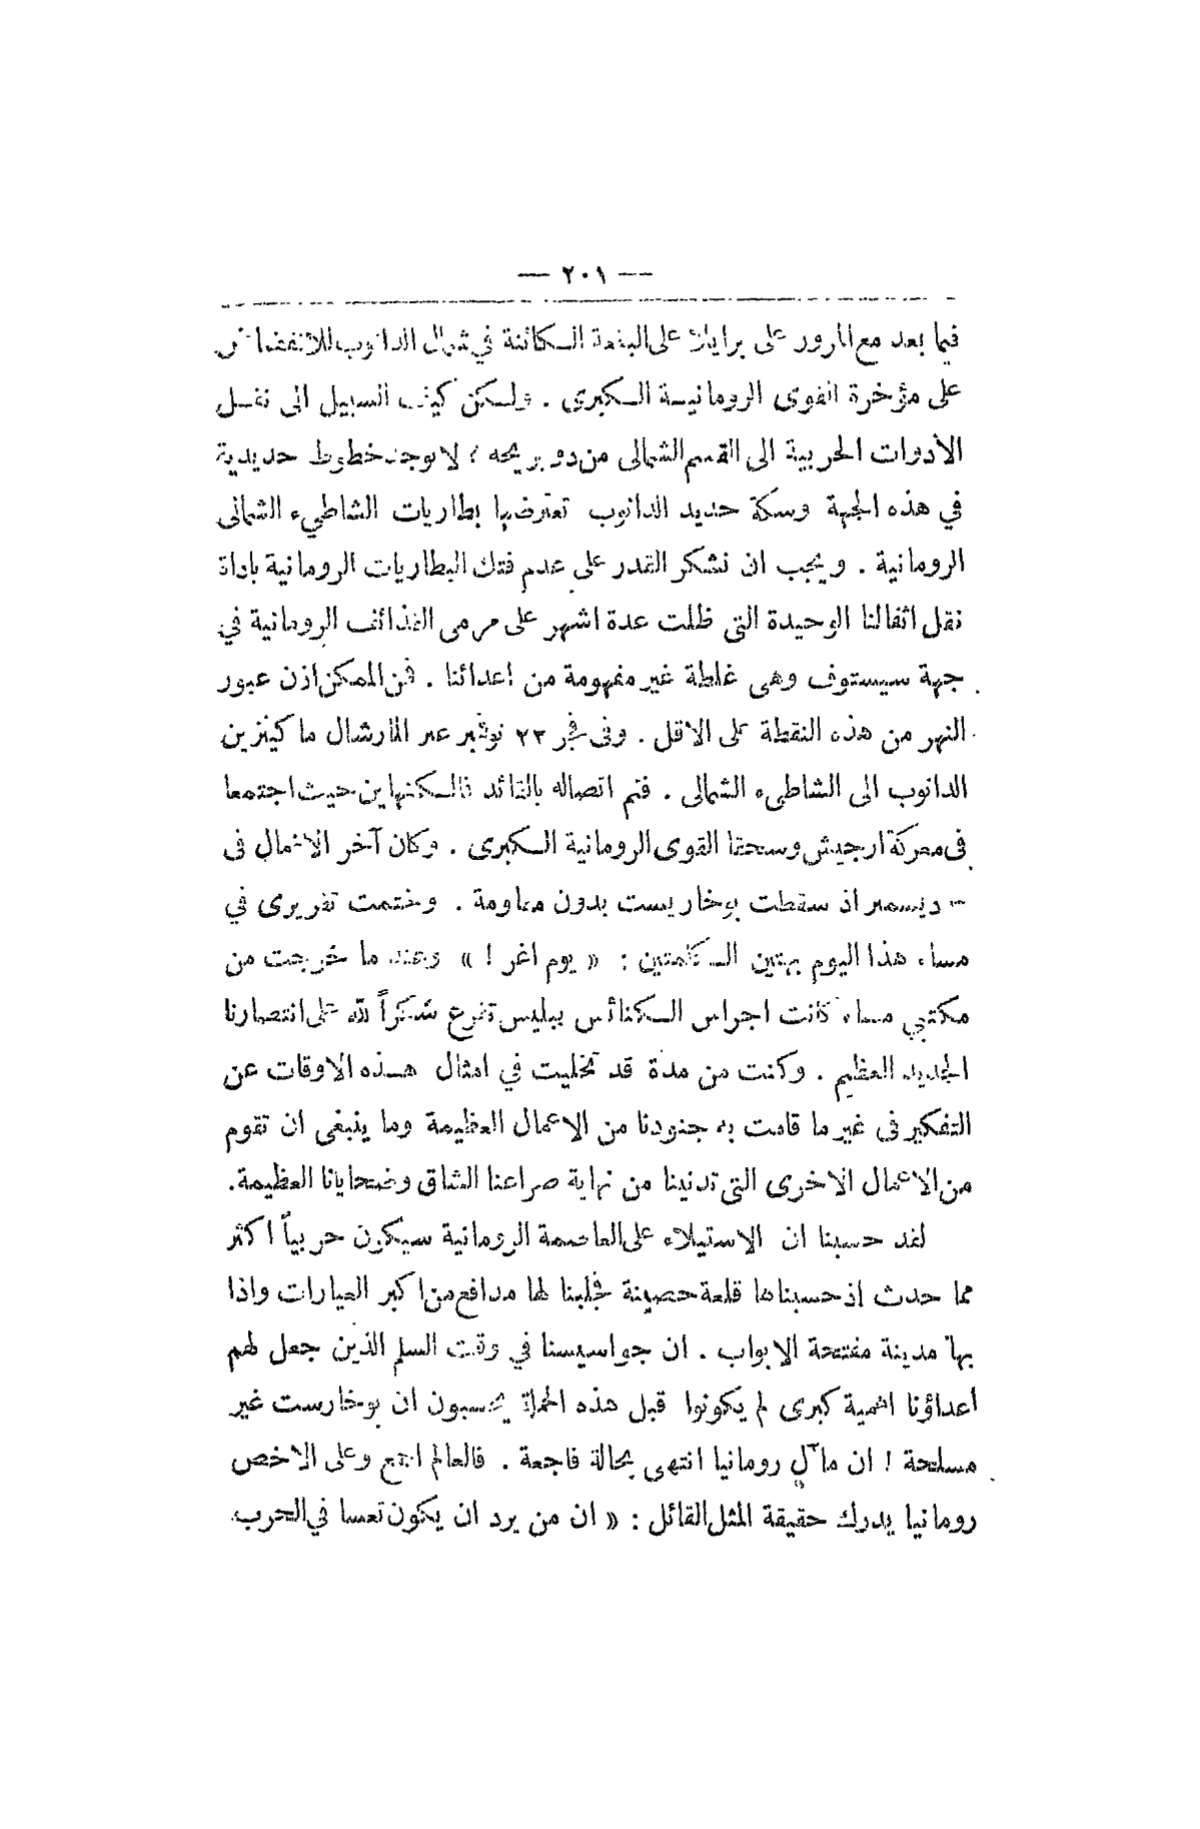 — ٢٠١ —
فيما بعد مع المرور على برايلا على البقعة الكائنة في شمال الدانوب للانقضاض
على مؤخرة القوى الرومانية الكبرى . ولكن كيف السبيل الى نقل
الأدوات الحربية الى القسم الشمالى من دوبريجه ؛ لا توجد خطوط حديدية
في هذه الجهة وسكة حديد الدانوب تعترضها بطاريات الشاطيء الشمالى
الرومانية . ويجب ان نشكر القدر على عدم فتك البطاريات الرومانية باداة
نقل اثقالنا الوحيدة التى ظلت عدة اشهر على مرمى القذائف الرومانية في
جهة سيستوف وهى غلطة غير مفهومة من اعدائنا . فمن الممكن اذن عبور
النهر من هذه النقطة على الاقل . وفى فجر ٢٣ نوفمبر عبر المارشال ماكينزين
الدانوب الى الشاطىء الشمالى . فتم اتصاله بالقائد فالكنهاين حيث اجتمعا
فى معركة ارجيش وسحقا القوى الرومانية الكبرى . وكان آخر الاعمال فى
ديسمبر اذ سقطت بوخاريست بدون مقاومة . وختمت تقريرى في
مساء هذا اليوم بهتين الكلمتين : « يوم اغر ! » وعند ما خرجت من
مكتبي مساء كانت اجراس الكنائس ببليس تقرع شكراً لله على انتصارنا
الجديد العظيم . وكنت من مدة قد تخليت في امثال هذه الاوقات عن
التفكير فى غير ما قامت به جنودنا من الاعمال العظيمة وما ينبغى ان تقوم
من الاعمال الاخرى التى تدنينا من نهاية صراعنا الشاق وضحايانا العظيمة.
لقد حسبنا ان الاستيلاء على العاصمة الرومانية سيكون حربياً اكثر
مما حدث اذ حسبناها قلعة حصينة فجلبنا لها مدافع من اكبر العيارات واذا
بها مدينة مفتحة الابواب . ان جواسيسنا في وقت السلم الذين جعل لهم
أعداؤنا اهمية كبرى لم يكونوا قبل هذه الحملة يحسبون ان بوخارست غير
مسلحة ! ان مآل رومانيا انتهى بحالة فاجعة . فالعالم اجمع وعلى الاخص
رومانيا يدرك حقيقة المثل القائل : « ان من يرد ان يكون تعسا في الحرب